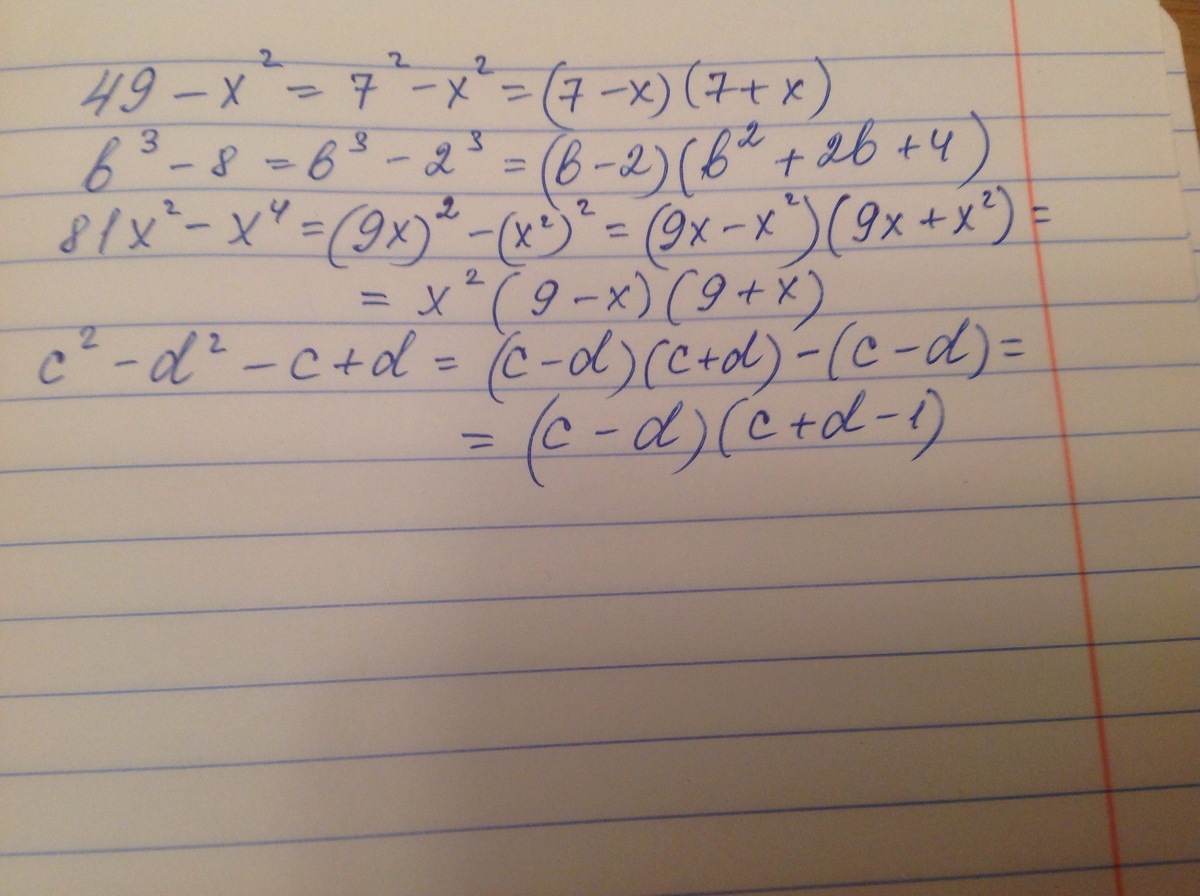 49 - x² = 7² - x² = (7 - x)(7 + x)
b³ - 8 = b³ - 2³ = (b - 2)(b² + 2b + 4)
81x² - x⁴ = (9x)² - (x²)² = (9x - x²)(9x + x²) =
= x²(9 - x)(9 + x)
c² - d² - c + d = (c - d)(c + d) - (c - d) =
= (c - d)(c + d - 1)